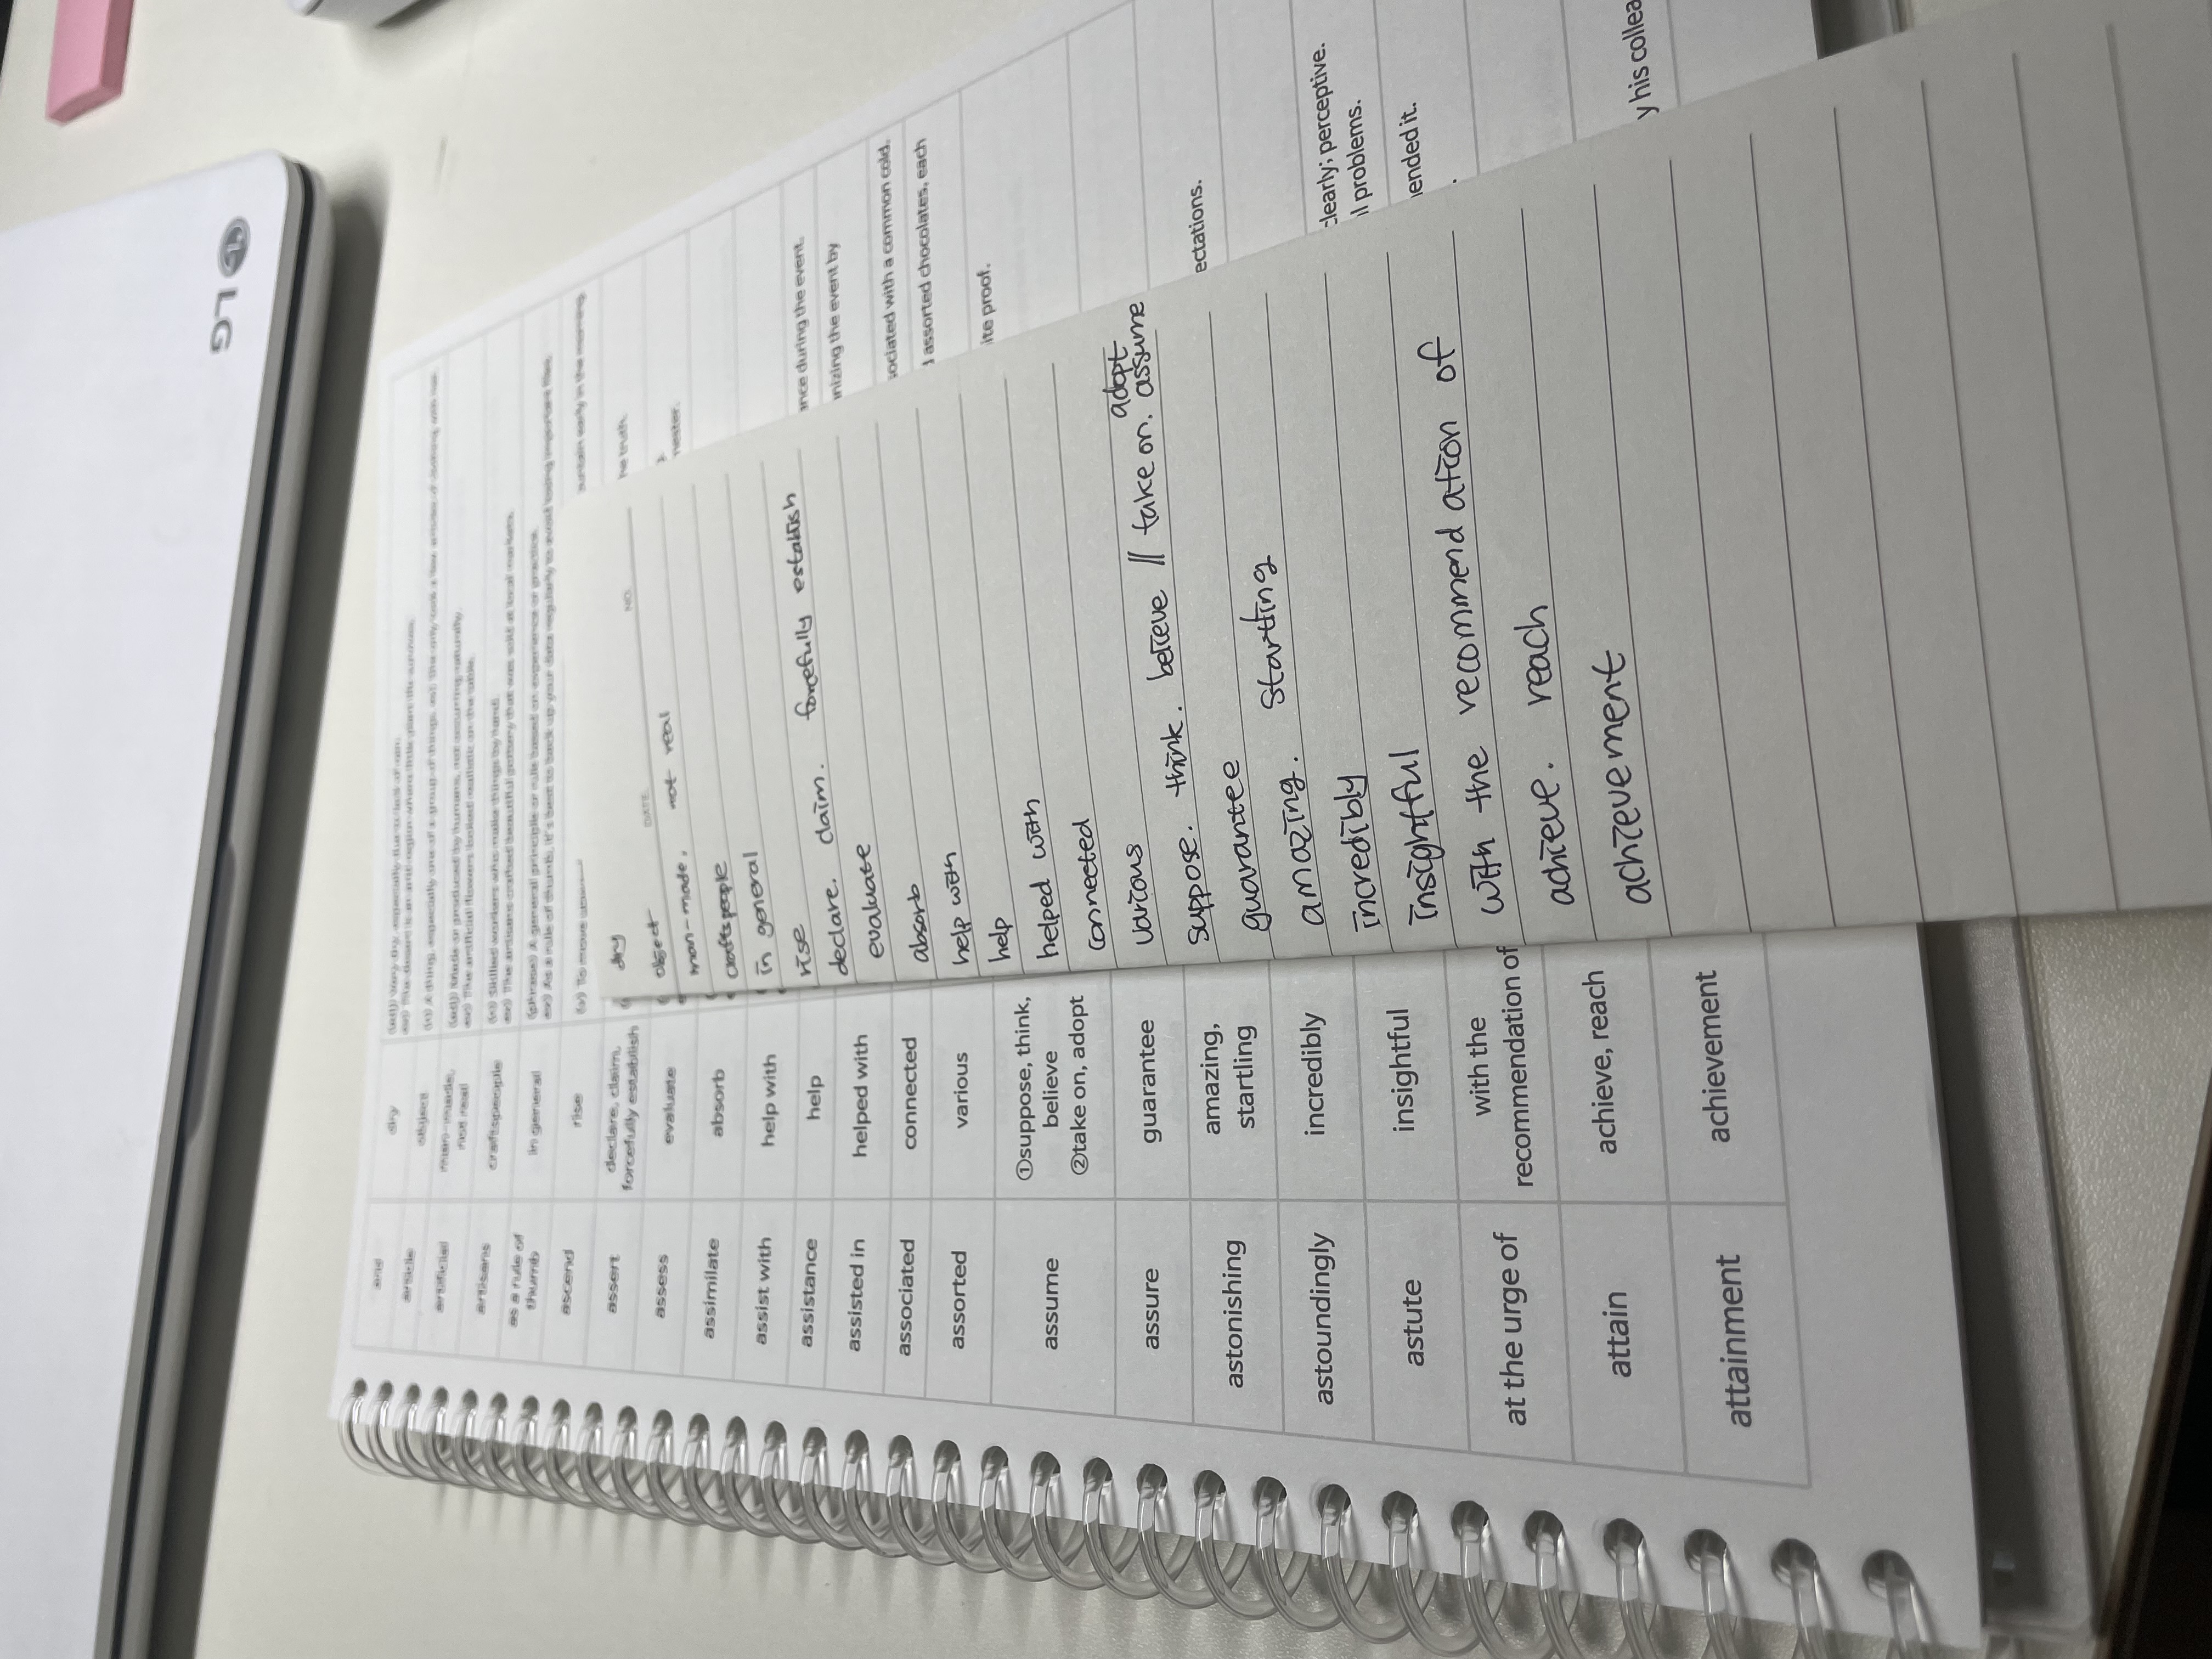 LG
arid
dry
(adj) Very dry, especially due to lack of rain.
article
object
artificial
man-made,
not real
(adj) Made or produced by humans, not occurring naturally.
ex) The artificial flowers looked realistic on the table.
artisans
craftspeople
(n) Skilled workers who make things by hand.
ex) The artisans crafted beautiful pottery that was sold at local markets.
as a rule of
thumb
in general
(phrase) A general principle or rule based on experience or practice.
ex) As a rule of thumb, it's best to back up your data regularly to avoid losing important files.
ascend
rise
(v) To move
untain early in the morning.
assert
declare, claim,
forcefully establish
he truth.
assess
evaluate
mester.
assimilate
absorb
assist with
help with
assistance
help
ance during the event.
assisted in
helped with
nizing the event by
associated
connected
sociated with a common cold.
assorted
various
assorted chocolates, each
assume
①suppose, think,
believe
②take on, adopt
ite proof.
assure
guarantee
astonishing
amazing,
startling
ectations.
astoundingly
incredibly
astute
insightful
clearly; perceptive.
l problems.
at the urge of
with the
recommendation of
ended it.
attain
achieve, reach
attainment
achievement
y his collea
DATE
NO.
dry
object
man-made, not real
craftspeople
in general
rise
declare. claim. forcefully establish
evaluate
absorb
help with
help
helped with
connected
various
adopt
suppose. think. believe // take on. assume
guarantee
amazing. startling
incredibly
insightful
with the recommendation of
achieve. reach
achievement